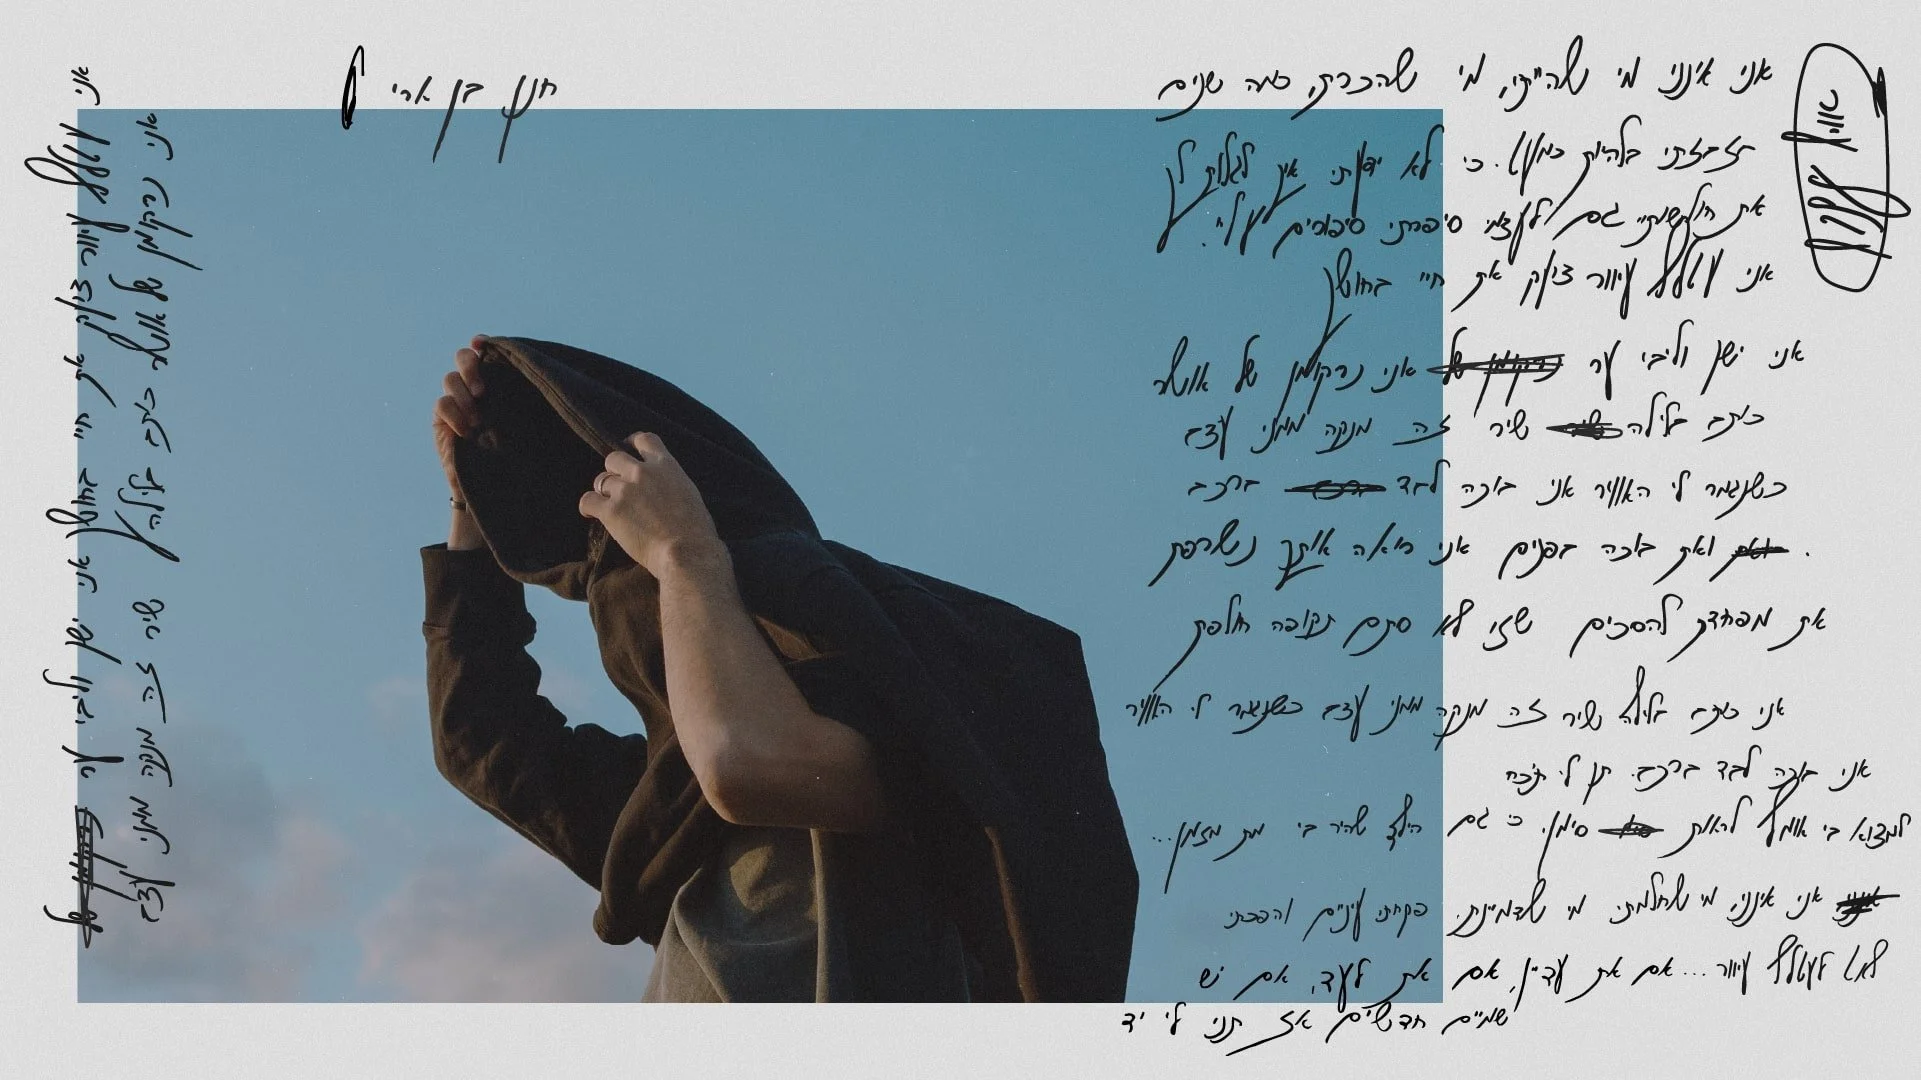 חנן בן ארי
אני אינני מי שהייתי, מי שהכרת, כמה שנים
בזבזתי בלהיות כמעט. כי לא ידעתי איך לגלות לך
את חולשותיי גם לעצמי סיפרתי סיפורים עליי.
אני עטלף עיוור צועק את חיי בחושך
אני ישן וליבי ער נרקומן של אני נרקומן של אושר
כותב בלילה שיר זה מנקה ממני עצב
כשנגמר לי האוויר אני בוכה לבד ברכב
ואת בוכה בפנים אני רואה אותך נשרפת
את מפחדת להסכים שזו לא סתם תקופה חולפת
אני כותב בלילה שיר זה מנקה ממני עצב כשנגמר לי האוויר
אני בוכה לבד ברכב. תן לי ת'כח
למצוא בי אומץ לראות סימן. כי גם הילד שהיה בי מת מזמן...
אני אינני, מי שחלמתי מי שדמיינת. פקחתי עיניים והפכתי
לאט לעטלף עיוור... אם את עדיין, אם את לעד, אם יש
שמיים חדשים אז תני לי יד
עטלף עיוור
אני עטלף עיוור צועק את חיי בחושך אני ישן וליבי ער נרקומן של
אני נרקומן של אושר כותב בלילה שיר זה מנקה ממני עצב